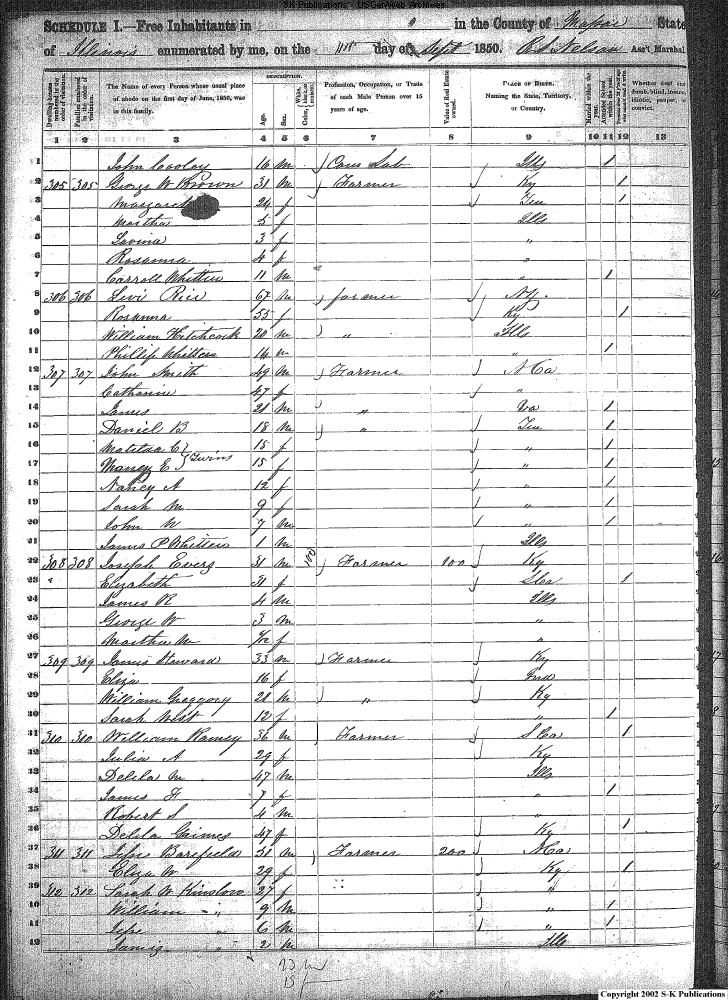 S-K Publications - USGenWeb Archives
SCHEDULE I.—Free Inhabitants in in the County of Massac State
of Illinois enumerated by me, on the 11th day of Sept 1850. R S Nelson Ass't Marshal
DESCRIPTION.
Dwelling-houses numbered in the order of visitation.
Families numbered in the order of visitation.
The Name of every Person whose usual place of abode on the first day of June, 1850, was in this family.
Age.
Sex.
Color, White, black, or mulatto.
Profession, Occupation, or Trade of each Male Person over 15 years of age.
Value of Real Estate owned.
PLACE OF BIRTH. Naming the State, Territory, or Country.
Married within the year.
Attended School within the year.
Whether deaf and dumb, blind, insane, idiotic, pauper, or convict.
1 2 3 4 5 6 7 8 9 10 11 12 13
1 John Cooley 16 m Lab Ills 1
2 305 305 George W Brown 31 m Farmer Ky 1
3 Margaret 24 f Ten 1
4 Martha 5 f Ills
5 Lavina 3 f "
6 Rosanna f "
7 Carroll Whitten 11 m " 1
8 306 306 Levi Rice 67 m farmer
9 Rosanna 55 f Ky 1
10 William Hitchcock 20 m " Ills
11 Phillip Whitten 16 m " 1
12 307 307 John Smith 49 m Farmer N Ca
13 Catharine 47 f "
14 James 21 m " Va 1
15 Daniel B 18 m " Ten 1
16 Matilda C 15 f " 1
17 E Twins 15 f " 1
18 Nancy A 12 f " 1
19 Sarah M 9 f " 1
20 John W 7 m " 1
21 James P Whitten 1 m Ills
22 308 308 Joseph Evers 31 m Farmer 100 Ky
23 " Elizabeth 31 f S Ca 1
24 James R 4 m Ills
25 George W 3 m "
26 Martha M f "
27 309 309 James Steward 33 m Farmer Ky
28 Eliza 16 f Ind
29 William Greggory 21 m " Ky
30 Sarah West 12 f " 1
31 310 310 William Ramsey 36 m Farmer S Ca 1
32 Julia A 29 f Ky
33 Delila M m Ills
34 James H 7 " 1
35 Robert S 4 m "
36 Delila Grimes 47 f Ky 1
37 311 311 Barefield 51 m Farmer 200 N Ca
38 Eliza W 29 f Ky 1
39 312 312 Sarah W Kinslow 27 f "
40 William " 9 m " 1
41 " 6 m " 1
42 James " 2 m Ills
Copyright 2002 S-K Publications